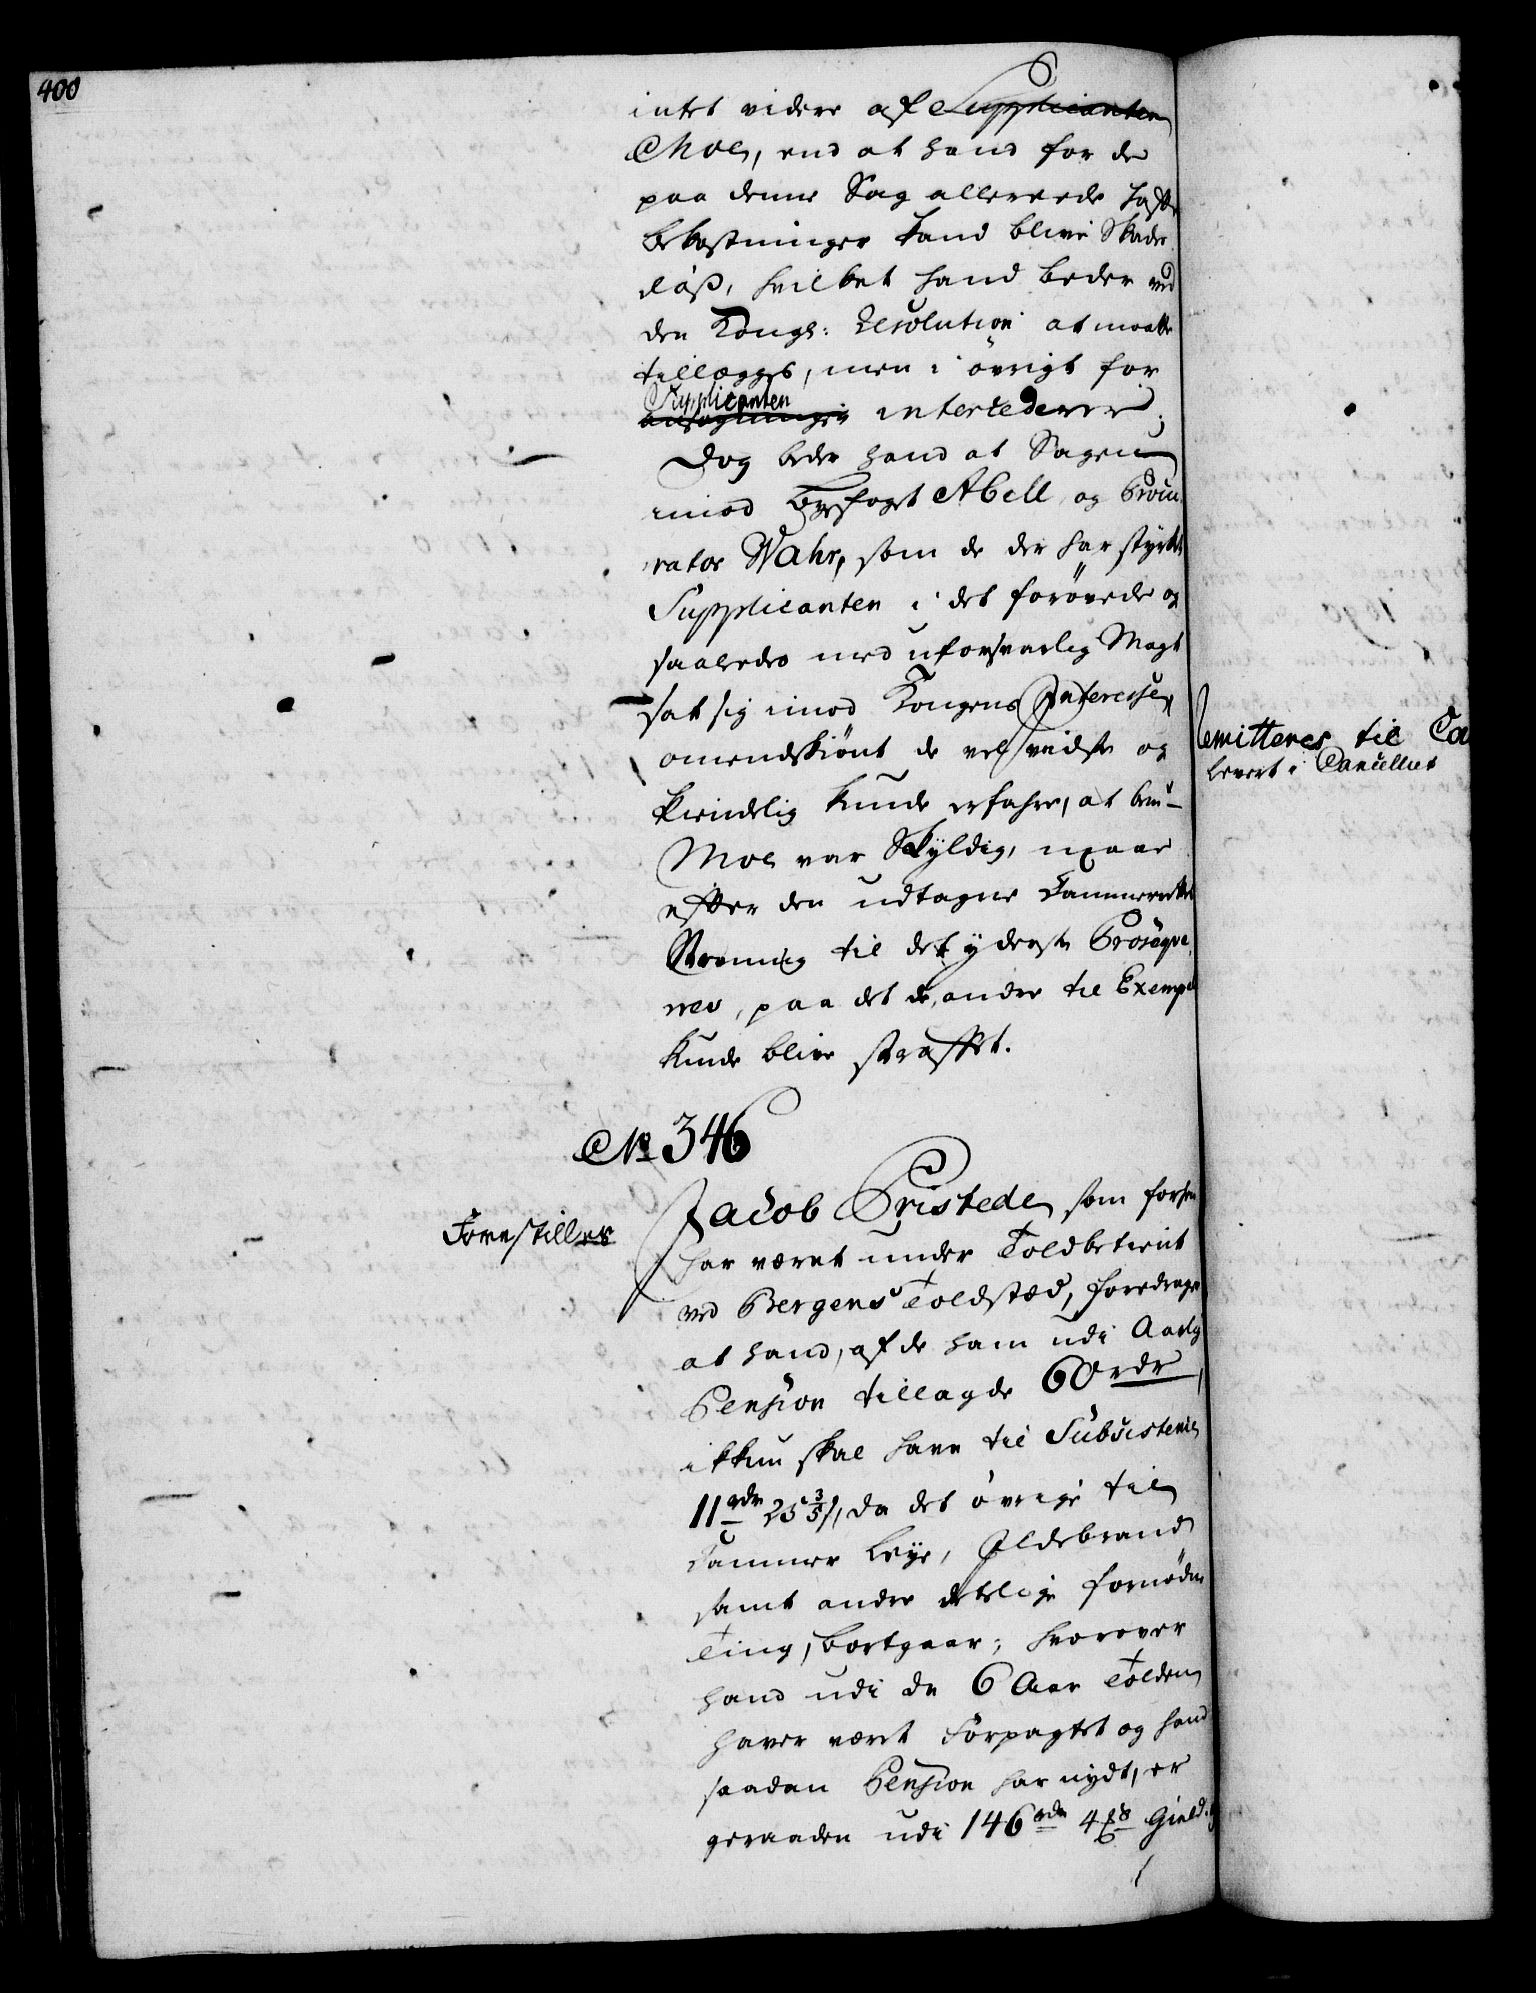 400
intet videre af Supplicanten
Moe, end at hand for de
paa denne Sag allereede hafte
bekostninger kand blive Skades
løß, hvilket hand beder ved
den Kongl: Resolution at maatte
tillægges, men i øvrigt for
Supplicanten
ansøgningen intercederer;
Dog beder hand at Sagen
imod Byefoget Abell og Procu
rator Wahr, som de der har styrket
Supplicanten i det forøvede og
saaledes med uforsvarlig Magt
sat sig imod Kongens Interesse,
omendskiønt de vel vidste og
kiendelig kunde erfahre, at bem-
Moe var Skyldig, maae
efter den udtagne Cammerrettes
Stevning til det yderste Proseqve
res, paa det de, andre til Exempel
kunde blive straffet.
No 346
Forestilles
Jacob Pristede som forhen
har været under Toldbetient
ved Bergens Toldsted, foredrager
at hand, af de ham udi Aarlig
Pension tillagde 60 rdr,
ikkun skal have til Subsistence
11 rdr 25 3/5 s, da det øvrige til
Cammer Leye, Ildebrand
samt andre deslige fornødne
Ting, bortgaar; hvorover
hand udi de 6 Aar Tolden
haver været Forpagtet og hand
saadan Pension har nydt, er
geraaden udi 146 rdr 4 ß Gield.
Remitteres til Ca
Levert i Cancelliet